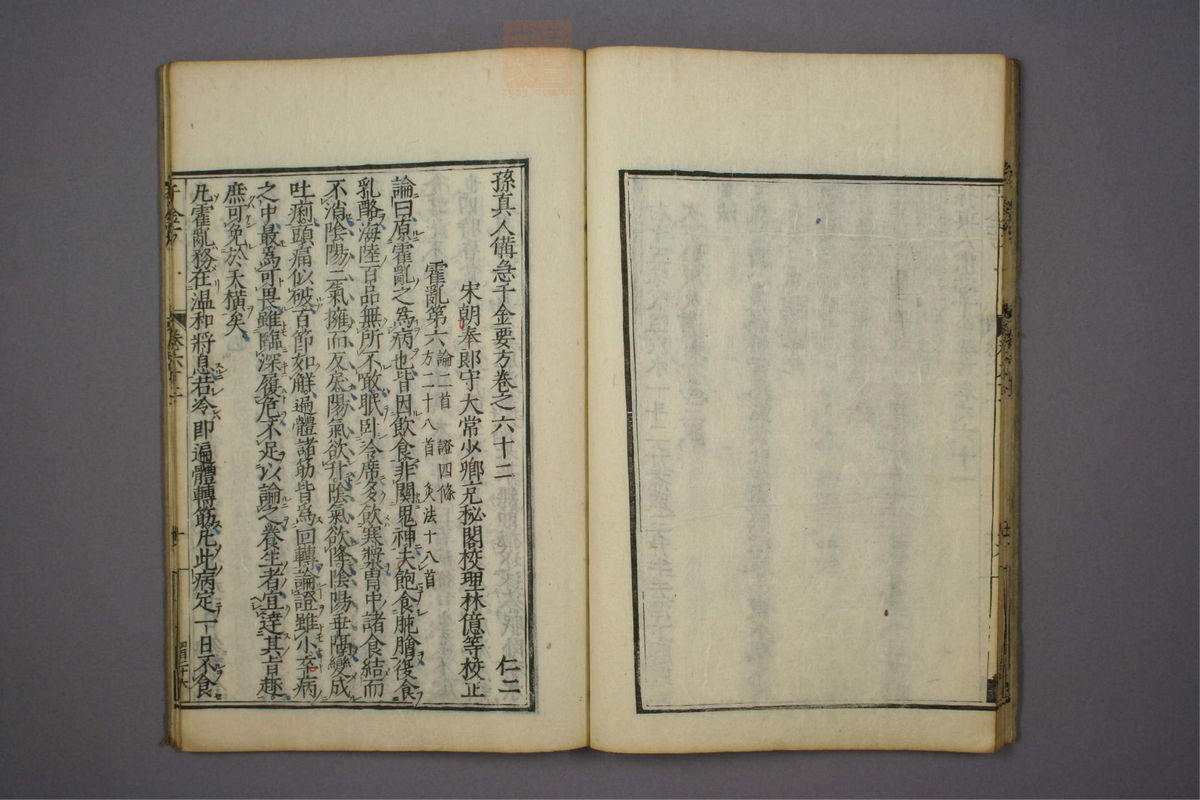 孫真人備急千金要方卷之六十二 仁二
宋朝奉郎守大常少卿充秘閣校理林億等校正
霍亂第六 論二首 證四條 方二十八首 灸法十八首
論曰原霍亂之爲病也皆因飲食非關鬼神夫飽食肫膾後食
乳酪海陸百品無所不噉眠臥冷席多飲寒漿胃中諸食結而
不消陰陽二氣擁而反戾陽氣欲升陰氣欲降陰陽乖隔變成
吐痢頭痛似破百節如解遍體諸筋皆爲回轉論證雖小卒病
之中最爲可畏雖臨深履危不足以諭之養生者宜達其旨趣
庶可免於夭橫矣
凡霍亂務在溫和將息若冷即遍體轉筋凡此病定一日不食